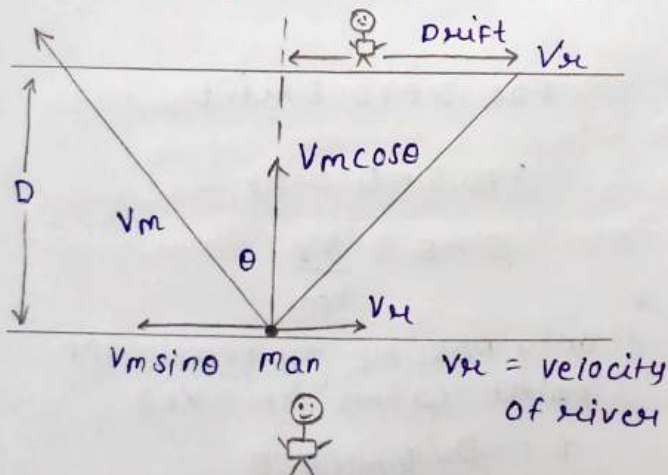 Drift
Vr
D
Vm cosθ
Vm
θ
Vr
Vm sinθ man
Vr = velocity
of river